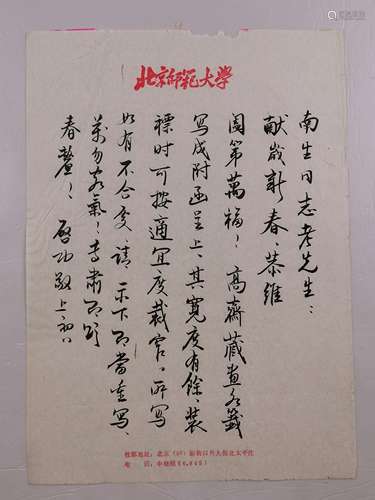 北京师范大学
南生同志老先生：
献岁新春，恭维
阖第万福！高斋藏画各签
写成附函呈上，其宽度有馀，装
裱时可按适宜度裁官。所写
如有不合处，请示下即当重写，
万勿客气！专肃即颂
春釐！启功敬上 初八
校部地址：北京
电话：中继线